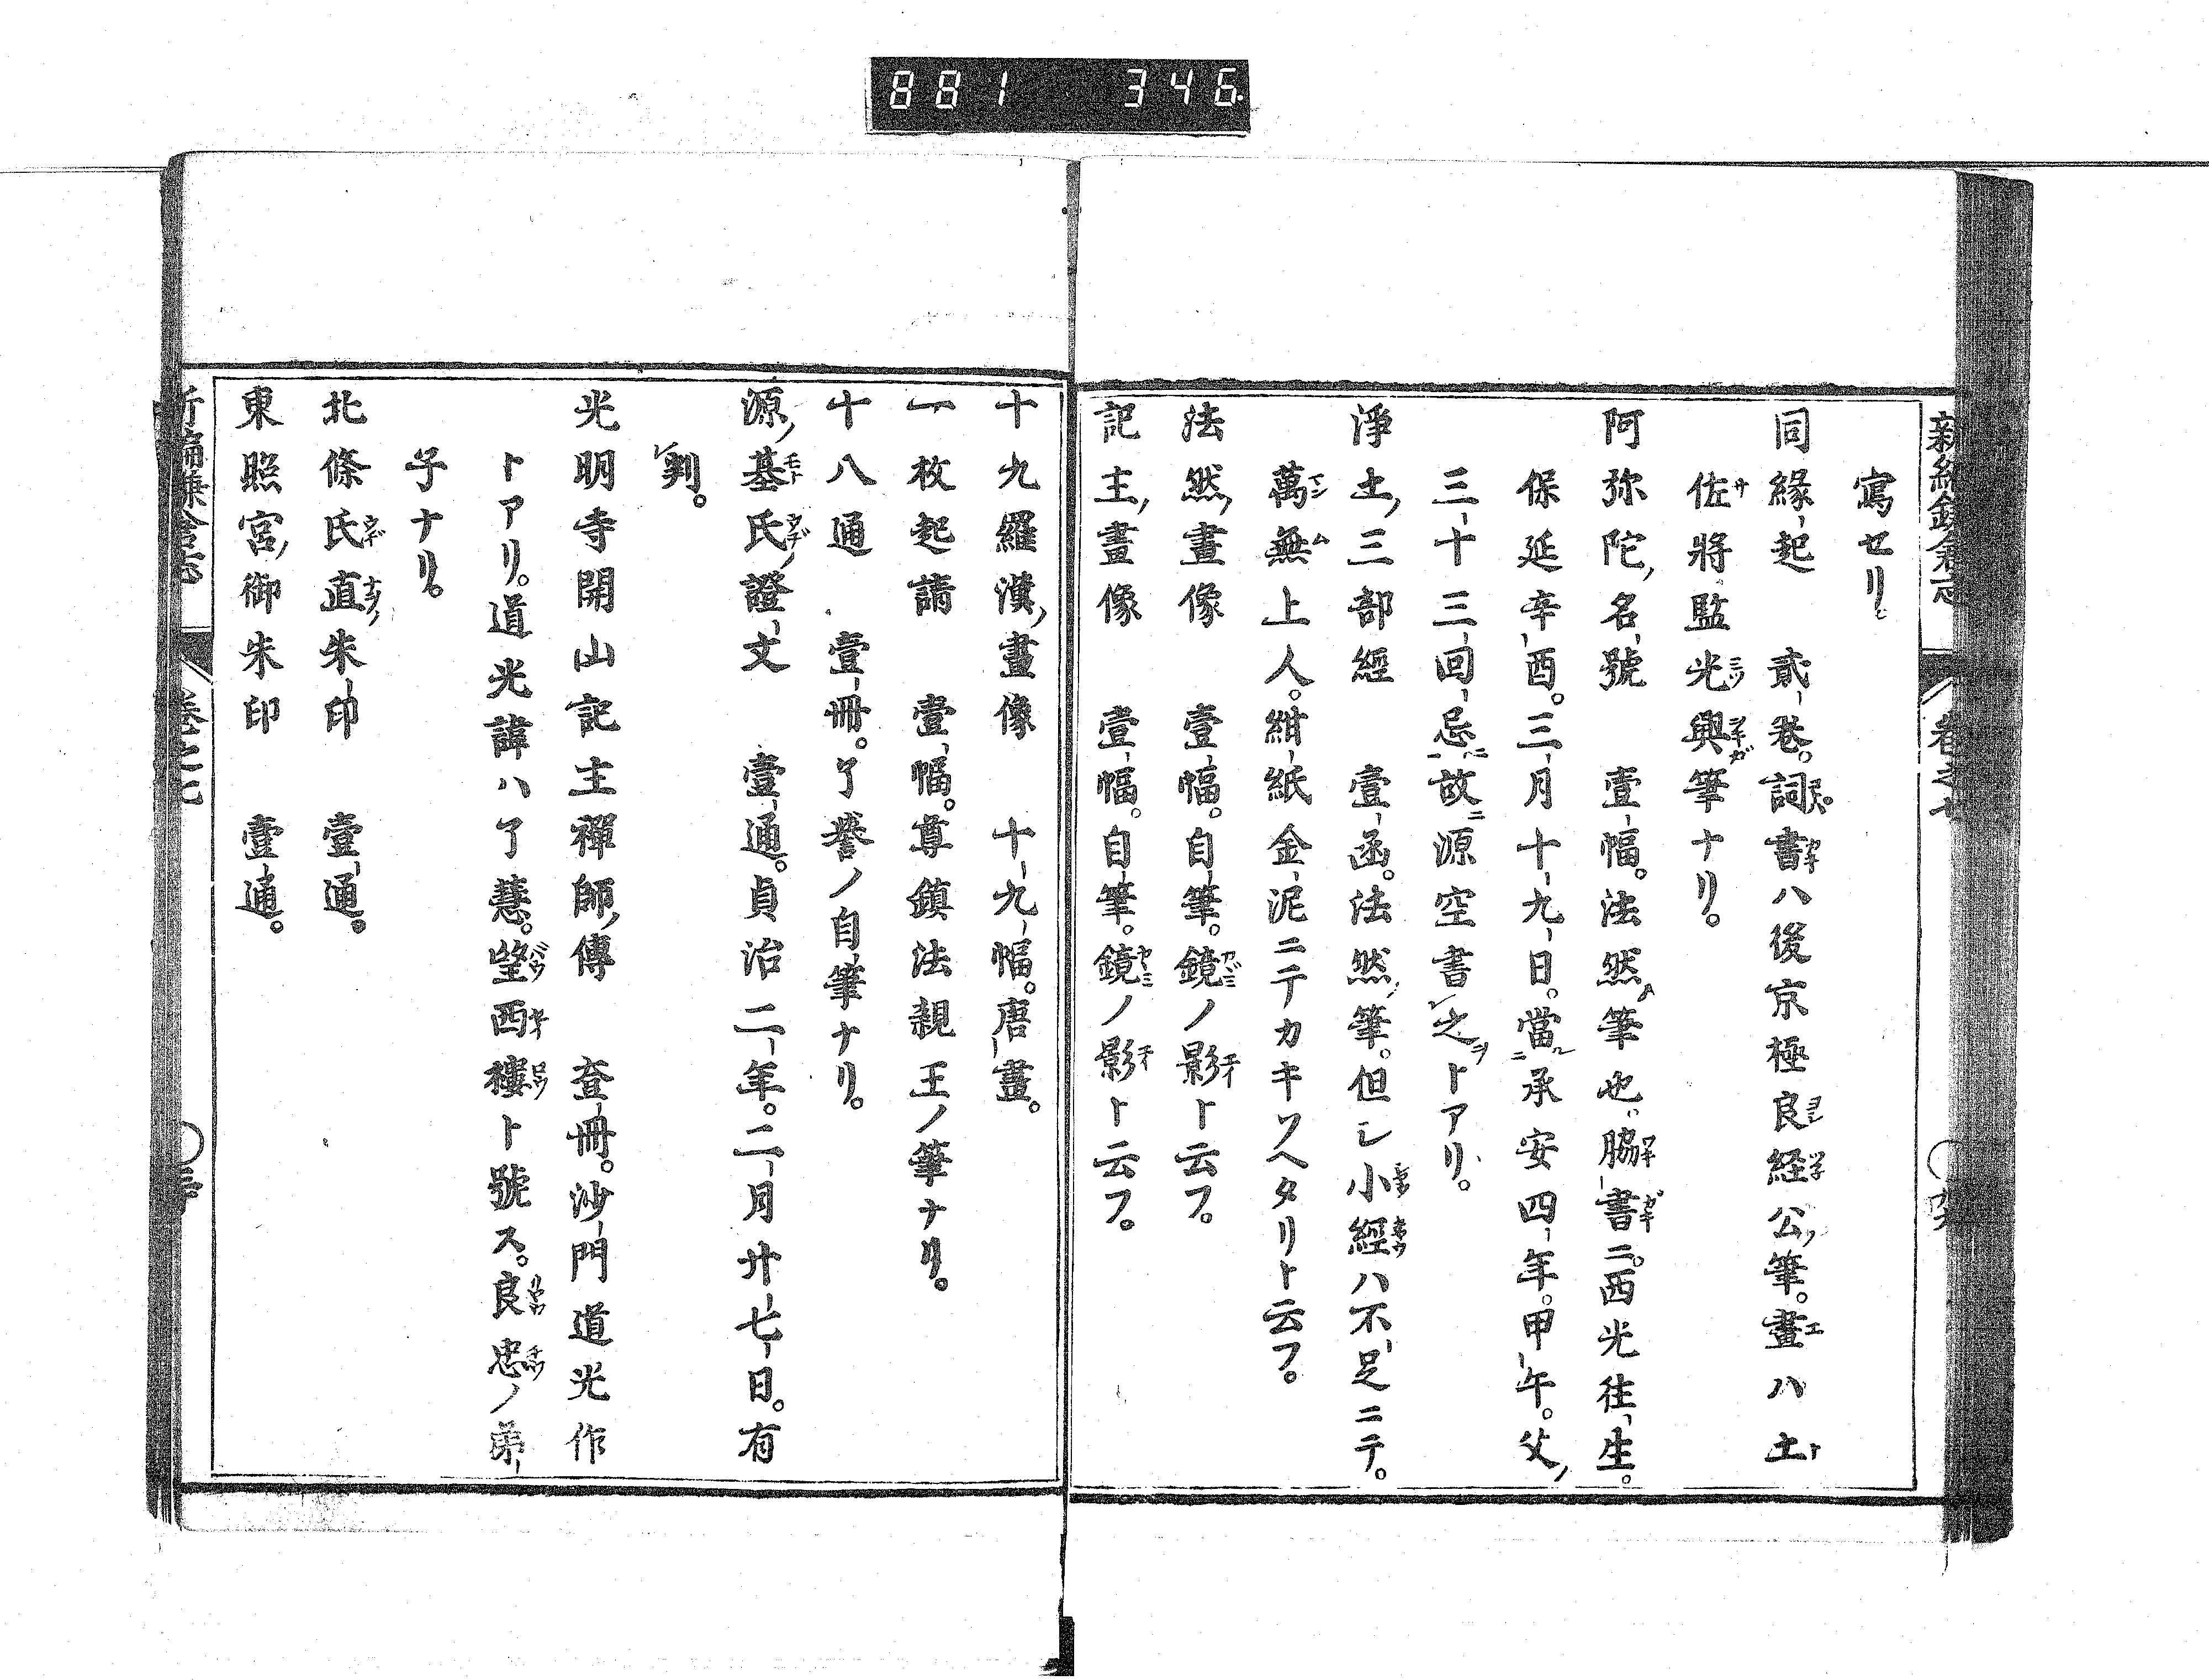 881 346
新編鎌倉志 卷之七
寫セリ。
同緣起 貳卷。詞書ハ後京極良経公筆。畫ハ土
佐將監光興筆ナリ。
阿弥陀名號 壹幅。法然筆也。脇書ニ。西光往生。
保延辛酉。三月十九日。當承安四年。甲午。父
三十三回忌故源空書之トアリ。
淨土三部經 壹函。法然筆。但シ小經ハ不足ニテ。
萬無上人。紺紙金泥ニテカキソヘタリト云フ。
法然畫像 壹幅。自筆。鏡ノ影ト云フ。
記主畫像 壹幅。自筆。鏡ノ影ト云フ。
十九羅漢畫像 十九幅。唐畫。
一枚起請 壹幅。尊鎮法親王ノ筆ナリ。
十八通 壹冊。了譽ノ自筆ナリ。
源基氏證文 壹通。貞治二年。二月廿七日。有
判。
光明寺開山記主禪師傳 壹冊。沙門道光作
トアリ。道光諱ハ了慧。望西樓ト號ス。良忠ノ弟
子ナリ。
北條氏直朱印 壹通。
東照宮御朱印 壹通。
新編鎌倉志 卷之七